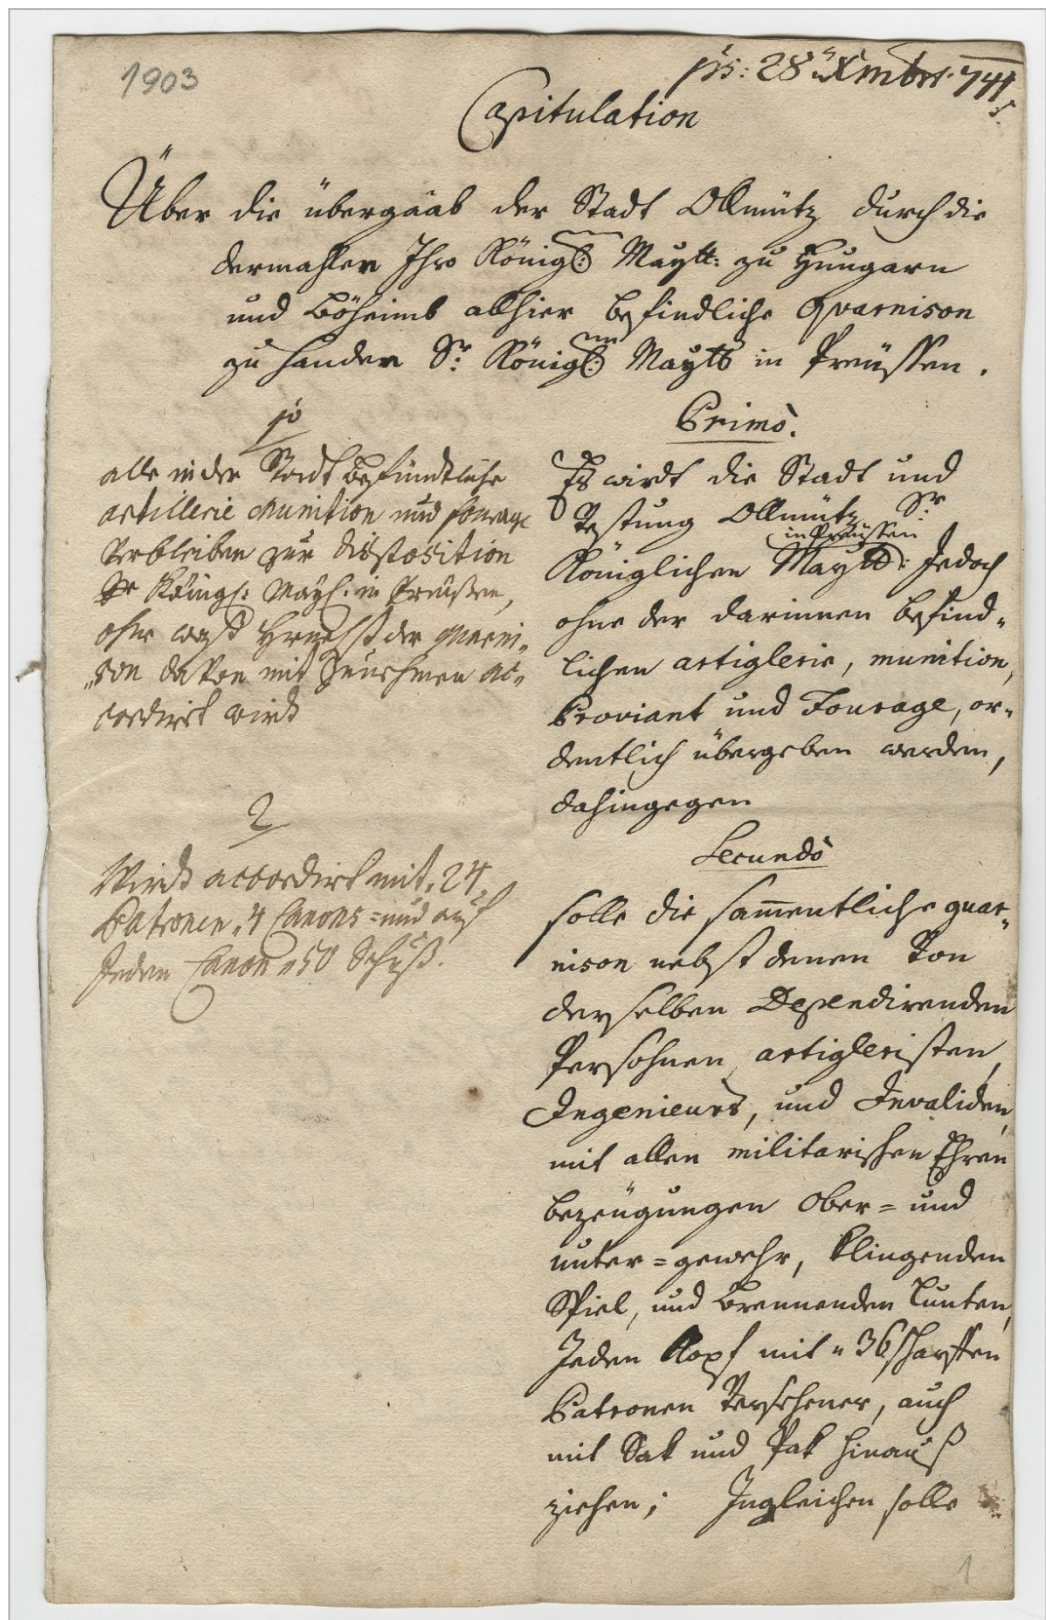 1903
Capitulation
Über die übergaab der Stadt Ollmütz durch die
dermahlen Ihro Königl: Maytt: zu Hungarn
und Böheimb allhier befindliche Quarnison
zu handen Sr. Königl: Maytt in Preüssen.
1o
alle in der Stadt befindtliche
artillerie Munition und fourage
verbleiben zur disposition
Sr Königl: Mayt: in Preüßen,
ohne waß der guarni-
son davon mit zunehmen ac-
cordirt wird
2
Wird accordirt mit 24
Patronen, 4 Canons = und auf
Jeden Canon 50 Schuß.
Primò.
Es wirdt die Stadt und
Vestung Ollmütz Sr
in Preüssen
Königlichen Maytt: Jedoch
ohne der darinnen befind-
lichen artiglerie, munition,
Proviant und Fourage, or-
dentlich übergeben werden,
dahingegen
Secundò
solle die sammentliche guar-
nison nebst denen von
derselben Dependirenden
Persohnen, artigleristen,
Ingenieurs, und Invaliden,
mit allen militarischen Ehren
bezeügungen Ober= und
unter=gewehr, klingenden
Spiel, und brennenden Lunten,
Jeden Kopf mit 36 scharffen
Patronen versehener, auch
mit Sak und Pak hinauß
ziehen; Ingleichen solle
1